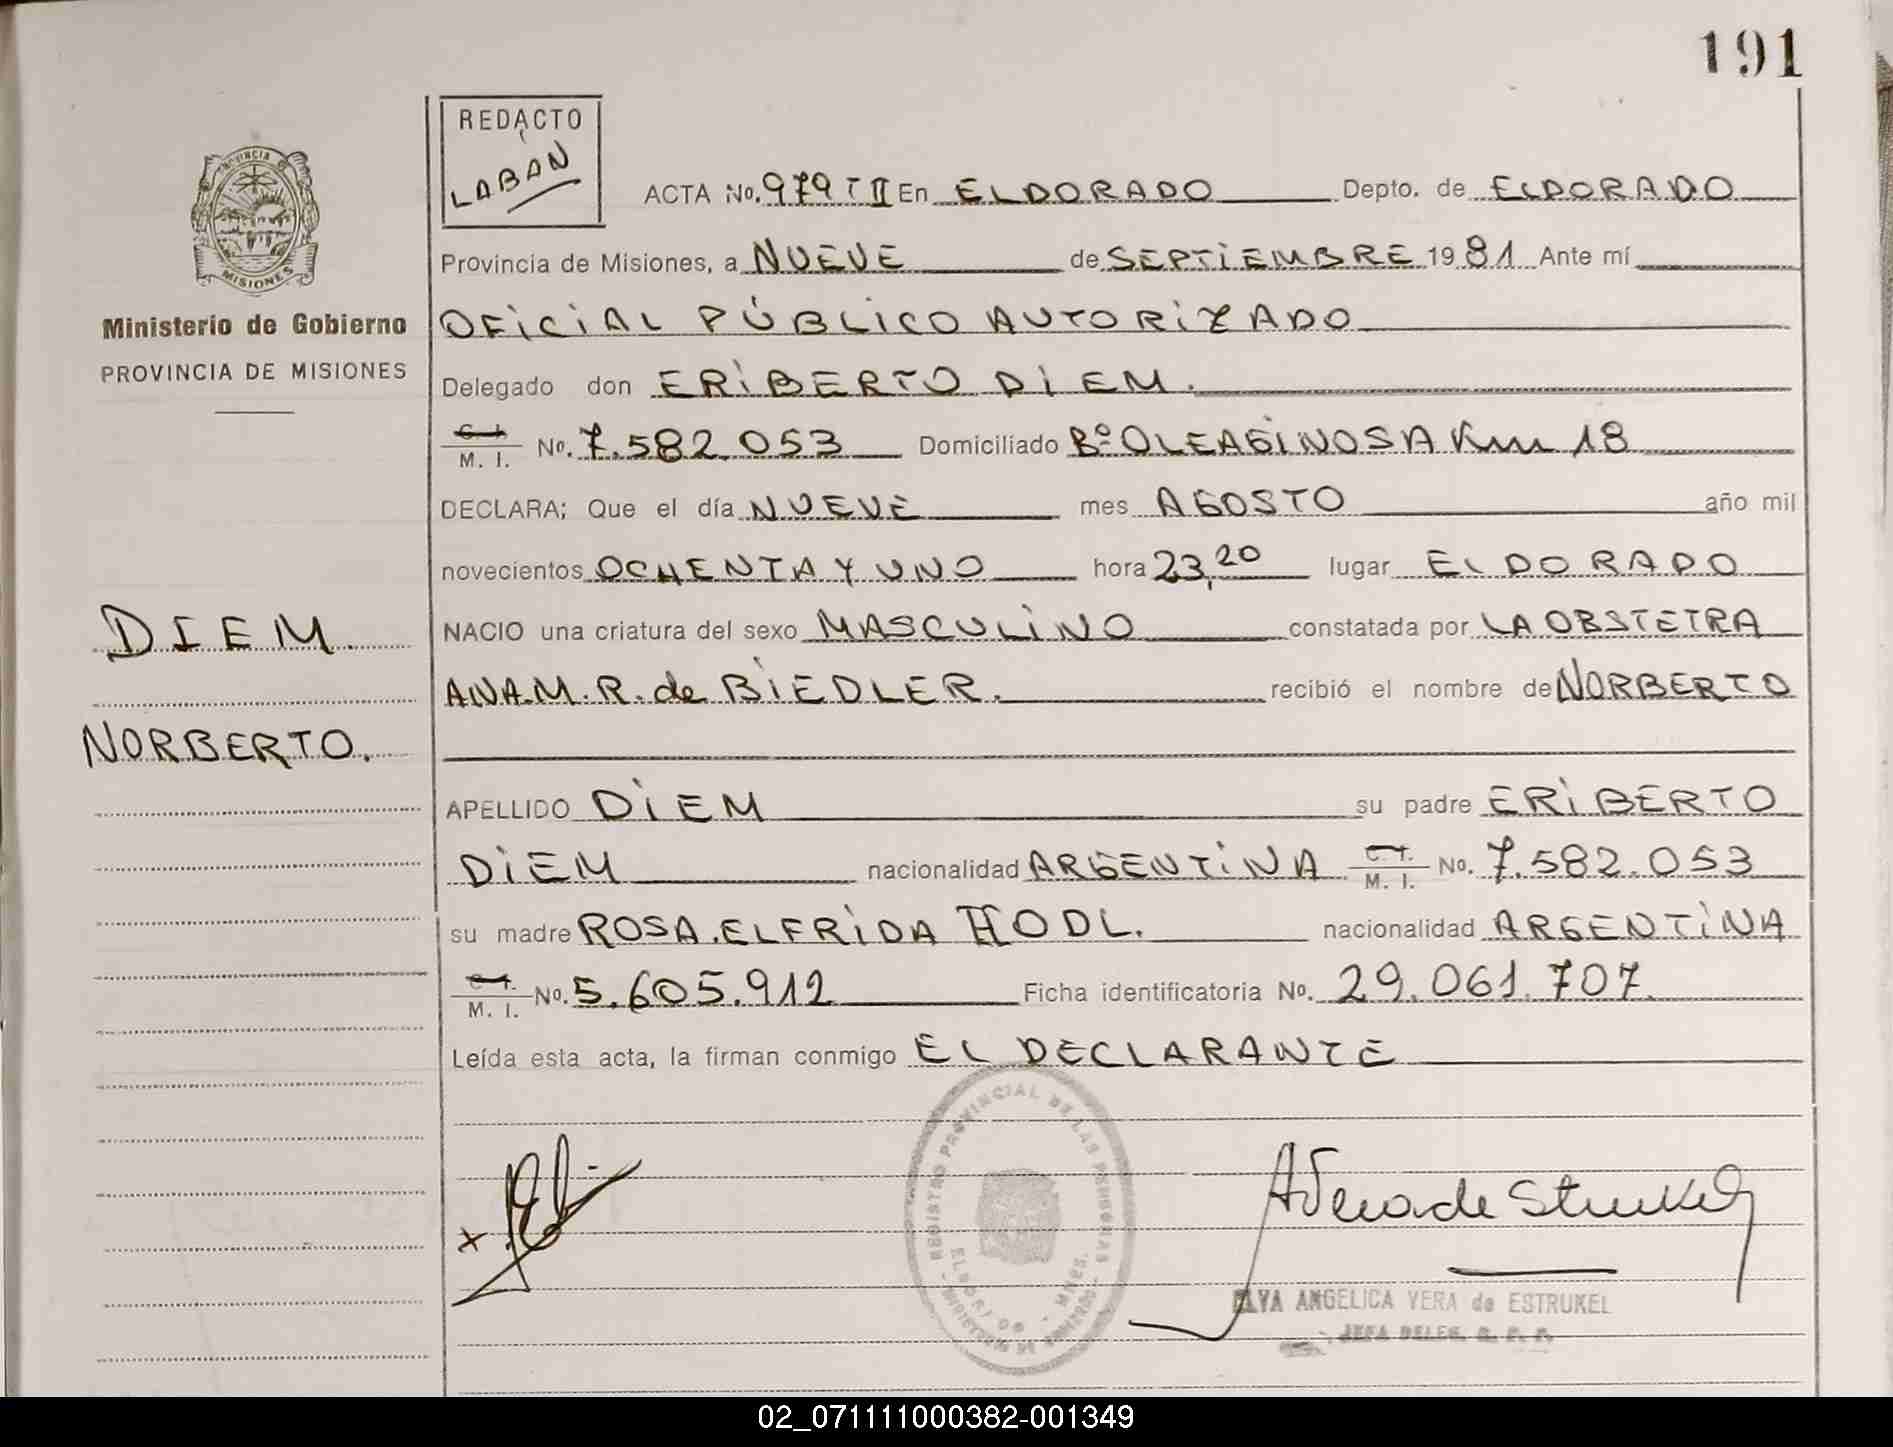 191
REDACTO
LABAN
PROVINCIA DE
MISIONES
ACTA No. 979 T II En ELDORADO Depto. de ELDORADO
Provincia de Misiones, a NUEVE de SEPTIEMBRE 1981 Ante mí
Ministerio de Gobierno
OFICIAL PÚBLICO AUTORIZADO
PROVINCIA DE MISIONES
Delegado don ERIBERTO DIEM.
C. I.
M. I. No. 7.582.053 Domiciliado Bº OLEAGINOSA Km 18
DECLARA; Que el día NUEVE mes AGOSTO año mil
novecientos OCHENTA Y UNO hora 23,20 lugar ELDORADO
DIEM.
NACIO una criatura del sexo MASCULINO constatada por LA OBSTETRA
ANA.M.R. de BIEDLER. recibió el nombre de NORBERTO
NORBERTO.
APELLIDO DIEM su padre ERIBERTO
DIEM nacionalidad ARGENTINA C. I. M. I. No. 7.582.053
su madre ROSA.ELFRIDA HODL. nacionalidad ARGENTINA
C. I.
M. I. No. 5.605.912 Ficha identificatoria No. 29.061.707
Leída esta acta, la firman conmigo EL DECLARANTE
REGISTRO PROVINCIAL DE LAS PERSONAS
ELDORADO - MNES.
MINISTERIO DE GOBIERNO
AVera de Strukel
ELVA ANGELICA VERA de ESTRUKEL
JEFA DELEG. R. P. P.
02_071111000382-001349